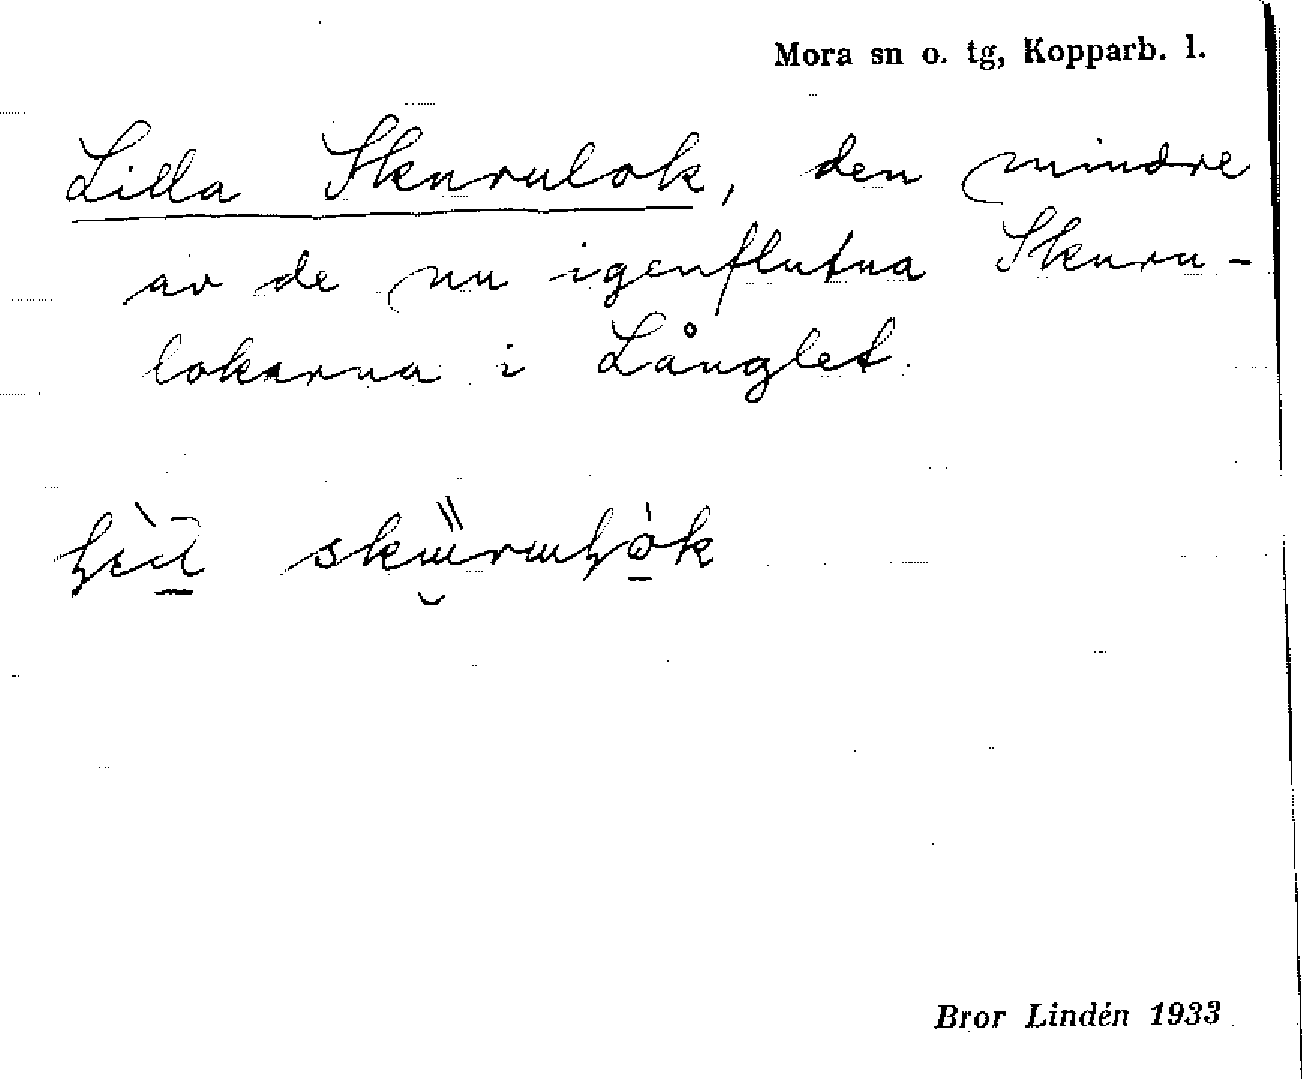 Mora sn o. tg, Kopparb. l.
Lilla Skurulok, den mindre
av de nu igenflutna Skuru-
lokarna i Långlet.
Bror Lindén 1933